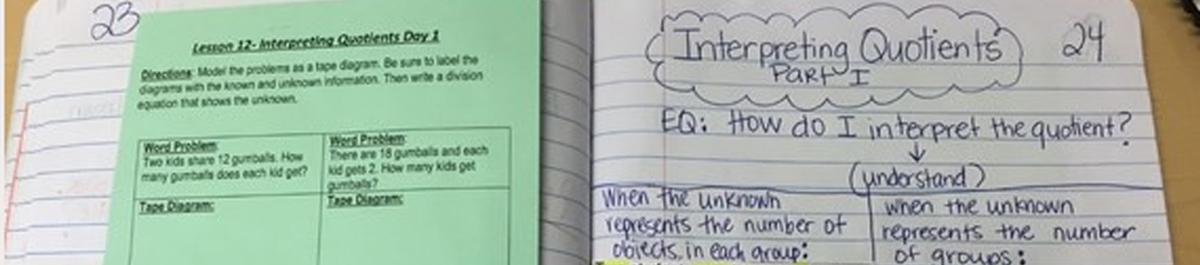 23
Lesson 12- Interpreting Quotients Day 1
Directions: Model the problems as a tape diagram. Be sure to label the
diagrams with the known and unknown information. Then write a division
equation that shows the unknown.
Word Problem:
Two kids share 12 gumballs. How
many gumballs does each kid get?
Tape Diagram:
Word Problem:
There are 18 gumballs and each
kid gets 2. How many kids get
gumballs?
Tape Diagram:
Interpreting Quotients
Part I
24
EQ: How do I interpret the quotient?
(understand)
When the unknown
represents the number of
objects in each group:
when the unknown
represents the number
of groups: